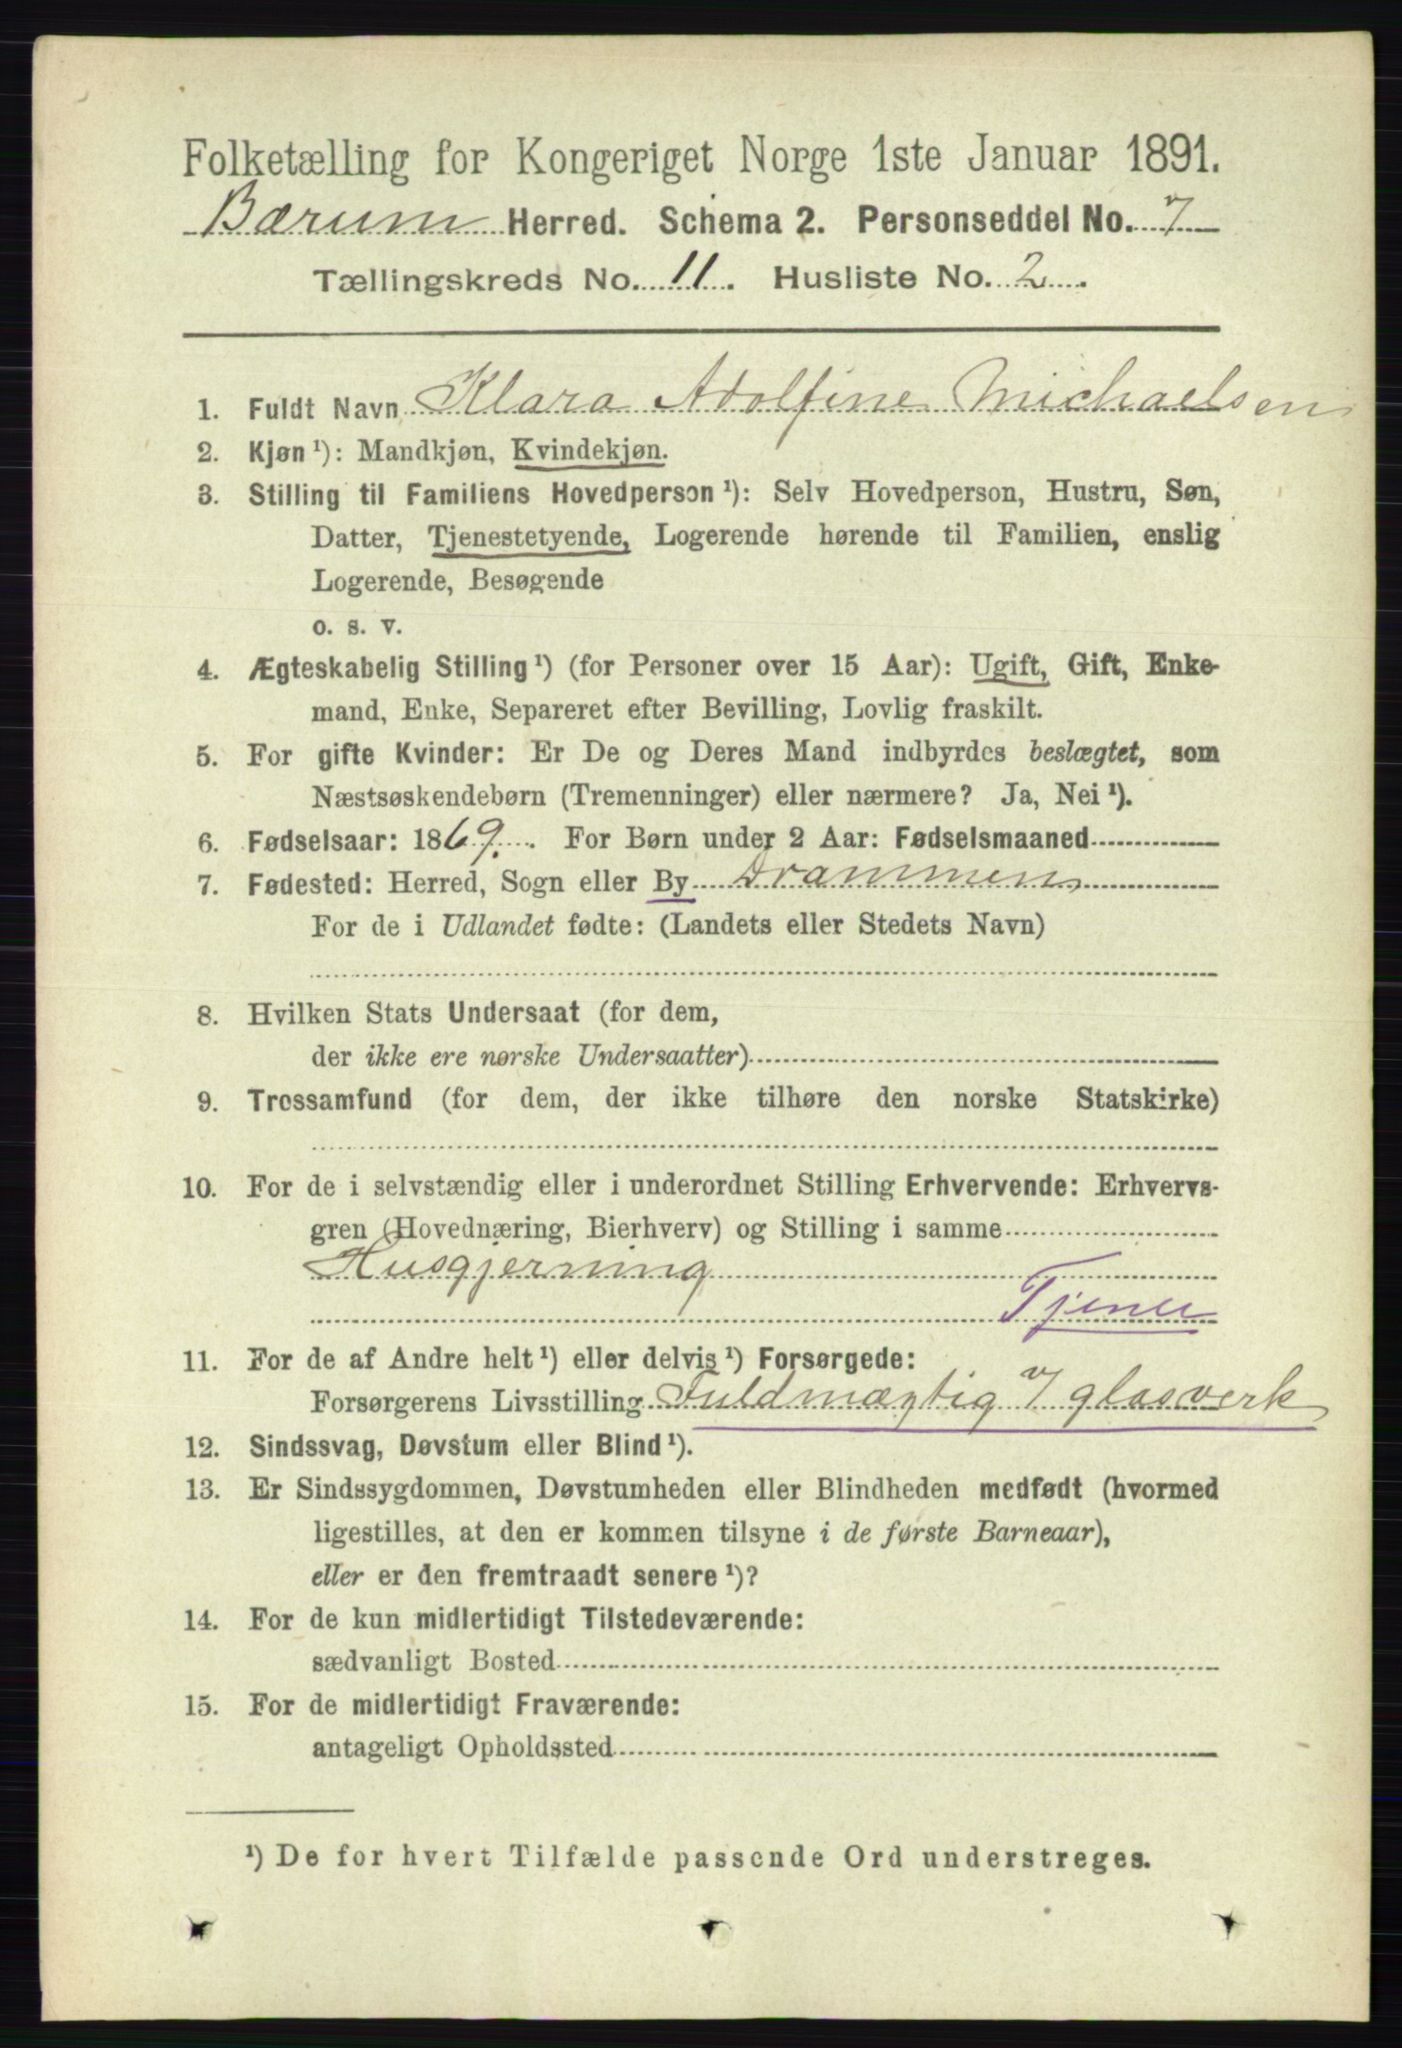 Folketælling for Kongeriget Norge 1ste Januar 1891.
Bærum Herred. Schema 2. Personseddel No. 7
Tællingskreds No. 11. Husliste No. 2.
1. Fuldt Navn Klara Adolfine Michaelsen
2. Kjøn¹): Mandkjøn, Kvindekjøn.
3. Stilling til Familiens Hovedperson¹): Selv Hovedperson, Hustru, Søn,
Datter, Tjenestetyende, Logerende hørende til Familien, enslig
Logerende, Besøgende
o. s. v.
4. Ægteskabelig Stilling¹) (for Personer over 15 Aar): Ugift, Gift, Enke-
mand, Enke, Separeret efter Bevilling, Lovlig fraskilt.
5. For gifte Kvinder: Er De og Deres Mand indbyrdes beslægtet, som
Næstsøskendebørn (Tremenninger) eller nærmere? Ja, Nei¹).
6. Fødselsaar: 1869. For Børn under 2 Aar: Fødselsmaaned
7. Fødested: Herred, Sogn eller By Drammen
For de i Udlandet fødte: (Landets eller Stedets Navn)
8. Hvilken Stats Undersaat (for dem,
der ikke ere norske Undersaatter)
9. Trossamfund (for dem, der ikke tilhøre den norske Statskirke)
10. For de i selvstændig eller i underordnet Stilling Erhvervende: Erhvervs-
gren (Hovednæring, Bierhverv) og Stilling i samme
Husgjerning
Tjener
11. For de af Andre helt¹) eller delvis¹) Forsørgede:
Forsørgerens Livsstilling Fuldmægtig v/ glasverk
12. Sindssvag, Døvstum eller Blind¹).
13. Er Sindssygdommen, Døvstumheden eller Blindheden medfødt (hvormed
ligestilles, at den er kommen tilsyne i de første Barneaar),
eller er den fremtraadt senere¹)?
14. For de kun midlertidigt Tilstedeværende:
sædvanligt Bosted
15. For de midlertidigt Fraværende:
antageligt Opholdssted
¹) De for hvert Tilfælde passende Ord understreges.